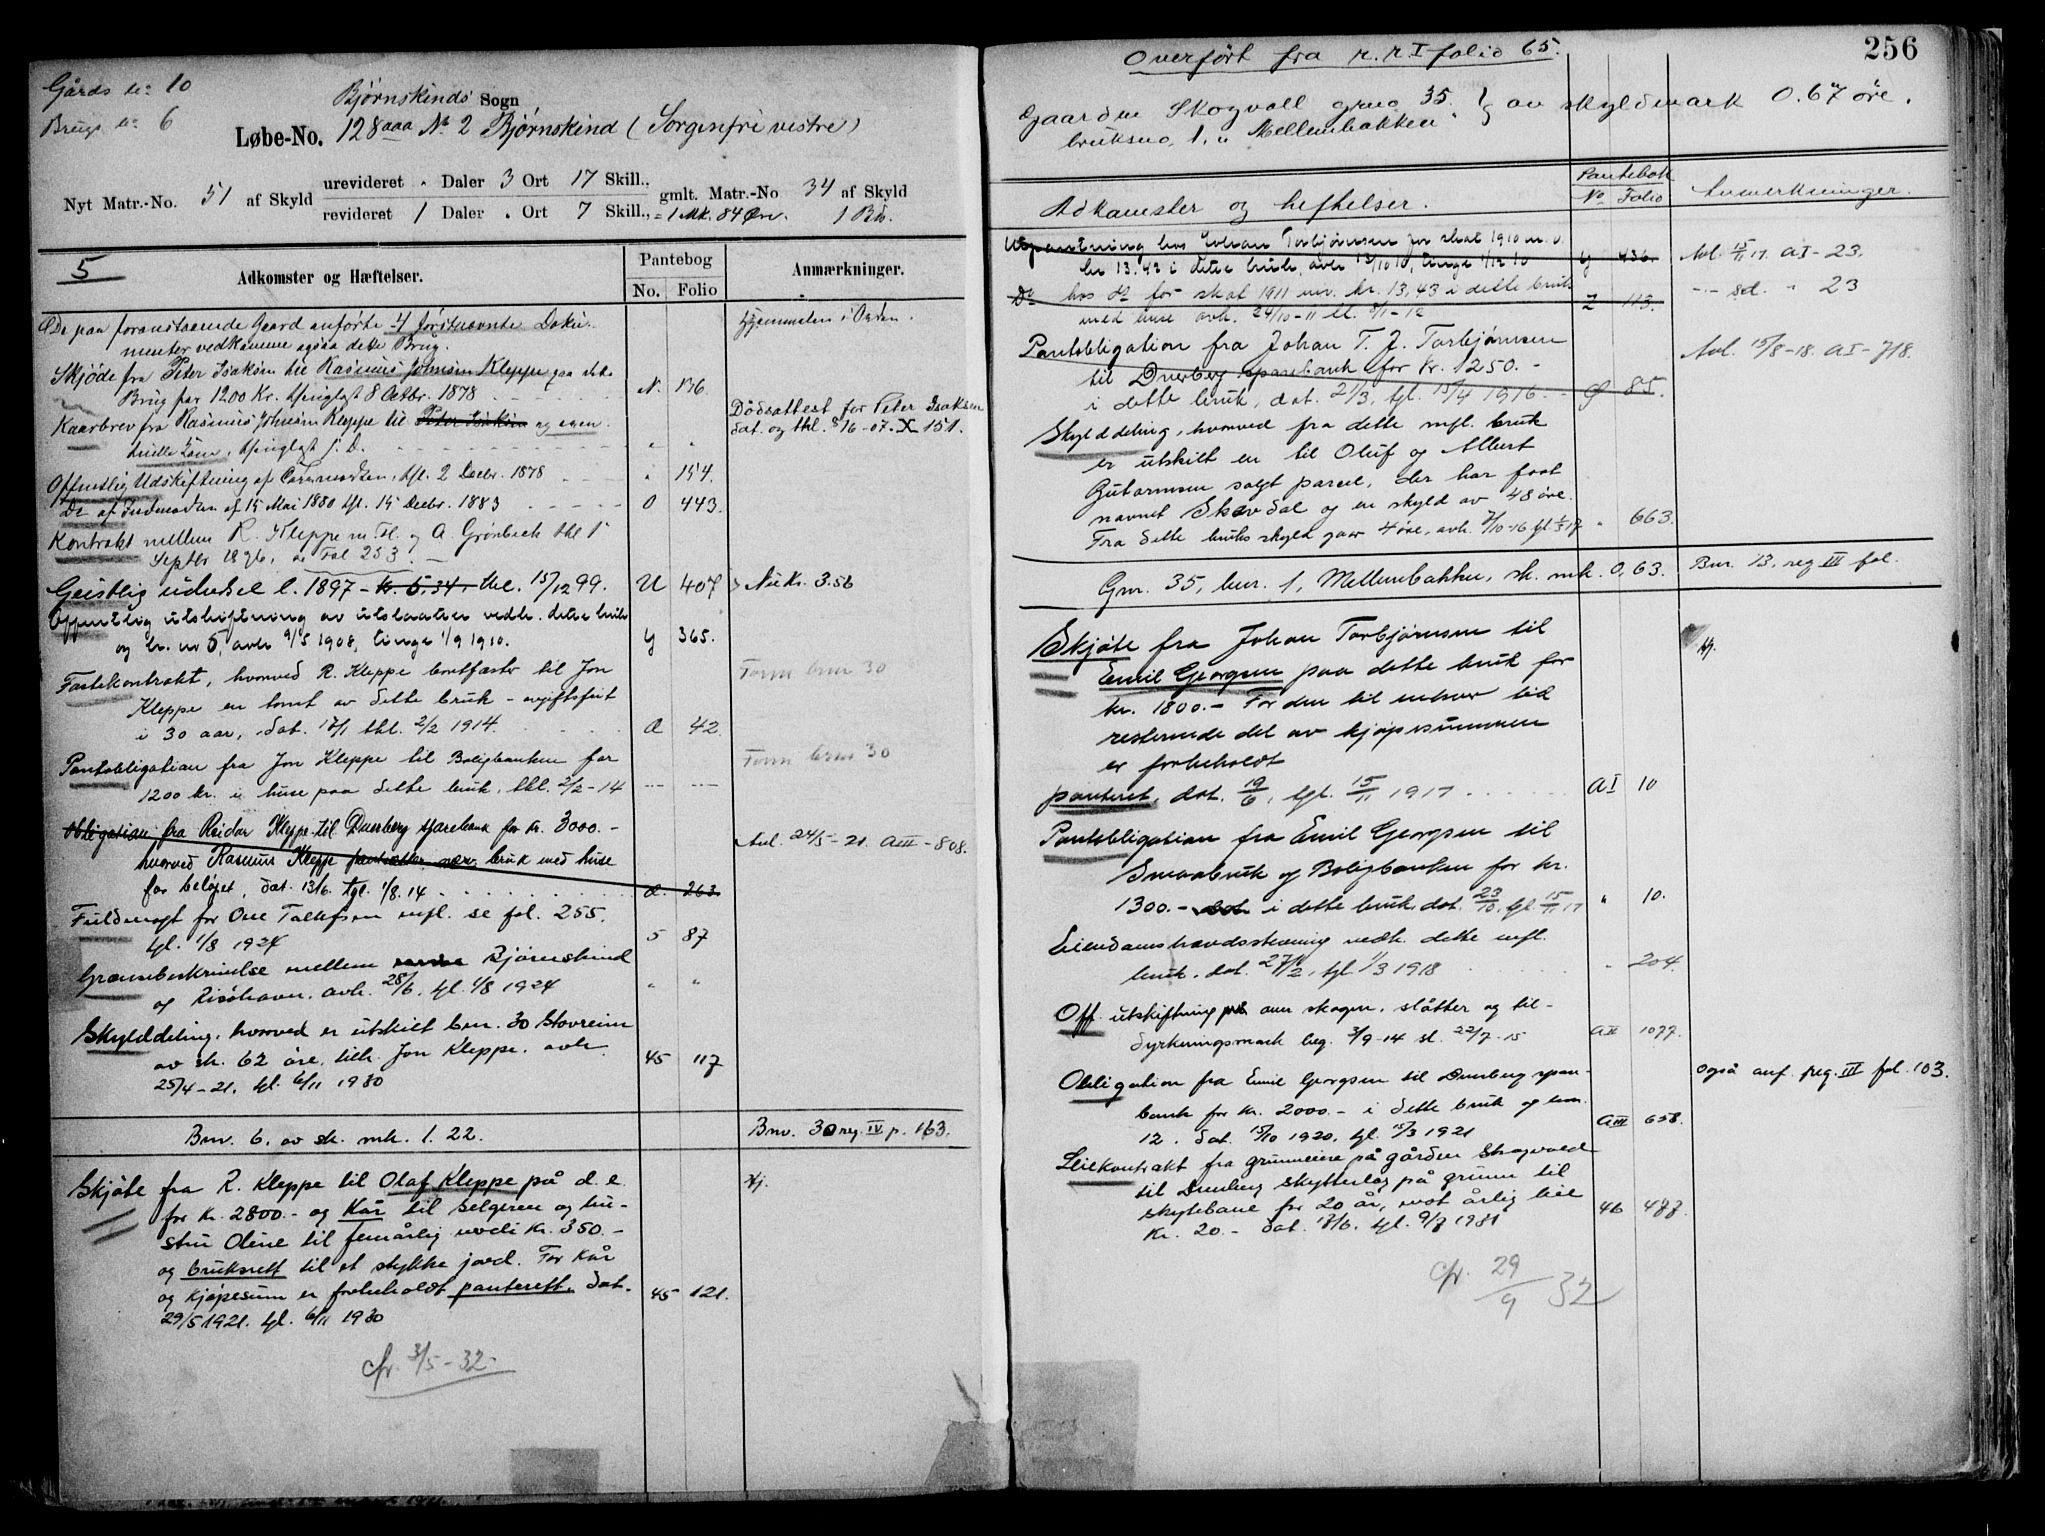 Gårds nr 10
Brugs nr 6
Bjørnskinds Sogn
Løbe-No. 128aaa № 2 Bjørnskind (Sorgenfri vestre)
Nyt Matr.-No. 51 af Skyld urevideret " Daler 3 Ort 17 Skill., gmlt. Matr.-No 34 af Skyld
revideret 1 Daler " Ort 7 Skill., = 1 Mk. 84 Øre. 1 Bd.
5
Adkomster og Hæftelser.
Pantebog
No. Folio
Anmærkninger.
De paa foranstaaende Gaard anførte 4 førstnævnte Doku- Hjemmelen i Orden.
menter vedkomme ogsaa dette Brug.
Skjøde fra Peter Isaksen til Rasmus Johnsen Kleppe paa dette
Brug for 1200 Kr. thinglyst 8 Octbr. 1878 N. 136.
Kaarbrev fra Rasmus Johnsen Kleppe til Peter Isaksen og egen Dødsattest for Peter Isaksen
dat. og thl. 8/6-07. X 151.
thinglyst s. D. " "
Offentlig Udskiftning af , thl. 2 Decbr. 1878 " 154.
Do af Indmarken af 15 Mai 1880 thl. 15 Decbr. 1883 O 443.
Kontrakt mellem R. Kleppe m. Fl. og A. Grønbech thl 5
Septbr 1896, se Fol 253.
Geistlig udvexel l. 1897 - kr. 5,34, thl. 15/12 99. U 407 Nu Kr. 3.56
Offentlig utskiftning av utslaatter vedk. dette bruk
og br. nr 5, avh 9/5 1908, tingl 1/9 1910. Y 365.
Festekontrakt, hvorved R. Kleppe bortfæster til Jon Form brnr 30
Kleppe en tomt av dette bruk - avgiftsfrit
i 30 aar, dat. 17/1 thl. 2/2 1914. Æ 42.
Pantobligation fra Jon Kleppe til Boligbanken for Form brnr 30
1200 kr. i huse paa dette bruk, thl. 2/2-14 --- ---
Obligation fra Reidar Kleppe til Dverberg sparebank for kr. 3000.- Avl. 24/5-21. AIII-808.
hvorved Rasmus Kleppe pantsætter nærv. bruk med huse
for beløpet, dat. 13/6. tgl. 1/8.14 Æ. 263
Fuldmagt for Ove Tollefsen mfl. se fol. 255.
tgl. 1/8 1924 5 87
Grænsebeskrivelse mellem Bjørnskind
og Risøhavn, avh. 28/6, tgl. 1/8 1924 " "
Skylddeling, hvorved er utskilt bnr. 30 Storreim
av sk. 62 øre, tilh. Jon Kleppe. avh. 45 117
25/4-21. tgl. 6/11 1930
Bnr. 6. av sk. mk. 1.22. Bnr. 30 reg. IV p. 163.
Skjøte fra R. Kleppe til Olaf Kleppe på d. e. Hj.
for kr. 2800.- og Kår til selgeren og hu-
stru Oline til femårlig verdi kr. 350.-
og bruksrett til et stykke jord. For kår
og kjøpesum er forbeholdt panterett. Dat. 45 121.
29/5 1921. tgl. 6/11 1930
Cfr. 3/5-32-
256
Overført fra r. r I folio 65.
Gaarden Skogvoll grno 35. } av skyldmark 0.67 øre.
bruksno, 1, " Mellembakken "
Adkomster og heftelser.
Pantebok
No Folio
Anmerkninger.
Utpantning hos Johan Torbjørnsen for skat 1910 m.v.
kr 13.42 i dette bruk, avh 13/10 10, tingl 1/12 10 Y 436. Avl. 15/11 17. AI-23.
Do hos do for skat 1911 mv. kr. 13,43 i dette bruk Z 113. -"- sd. " 23
med huse avh. 24/10-11 tl. 8/1-12
Pantobligation fra Johan T. J. Torbjørnsen Avl. 15/8-18. AI-718.
til Dverberg sparebank for kr. 1250.-
i dette bruk, dat. 21/3, tgl. 15/4 1916. Ø 85.
Skylddeling, hvorved fra dette mfl. bruk
er utskilt en til Oluf og Albert
Gutormsen solgt parcel, der har faat
navnet Skavdal og en skyld av 48 øre.
Fra dette bruks skyld gaar 4 øre, avh. 7/10-16 tgl 1/3 17 " 663.
Gnr. 35, bnr. 1, Mellembakken, sk. mk. 0,63. Bnr. 13, reg III fol.
Skjøte fra Johan Torbjørnsen til Hj.
Emil Georgsen paa dette bruk for
kr. 1800.- For den til enhver tid
resterende del av kjøpesummen
er forbeholdt
panteret, dat. 19/6, tgl. 15/11 1917 AI 10
Pantobligation fra Emil Georgsen til
Smaabruk og Boligbanken for kr.
1300.- i dette bruk, dat. 23/10, tgl. 15/11 17 " 10.
Eiendomshævdsstevning vedk. dette mfl.
bruk, dat. 27/2, tgl. 1/3 1918 " 204.
Off utskiftning over skogen, slåtter og til-
dyrkningsmark beg. 3/9-14 sl. 22/7-15 AII 1077.
Obligation fra Emil Georgsen til Dverberg spare- også anf. reg. III fol. 103.
bank for kr. 2000.- i dette bruk og bnr.
12. dat. 15/10 1920, tgl. 15/3 1921 AIII 658.
Leiekontrakt fra grunneiere på gården Skogvoll
til Dverberg skytterlag på grunn til
skytebane for 20 år, mot årlig leie
kr. 20.- dat. 17/6. tgl. 9/7 1931 46 487.
Cfr. 29/9 32